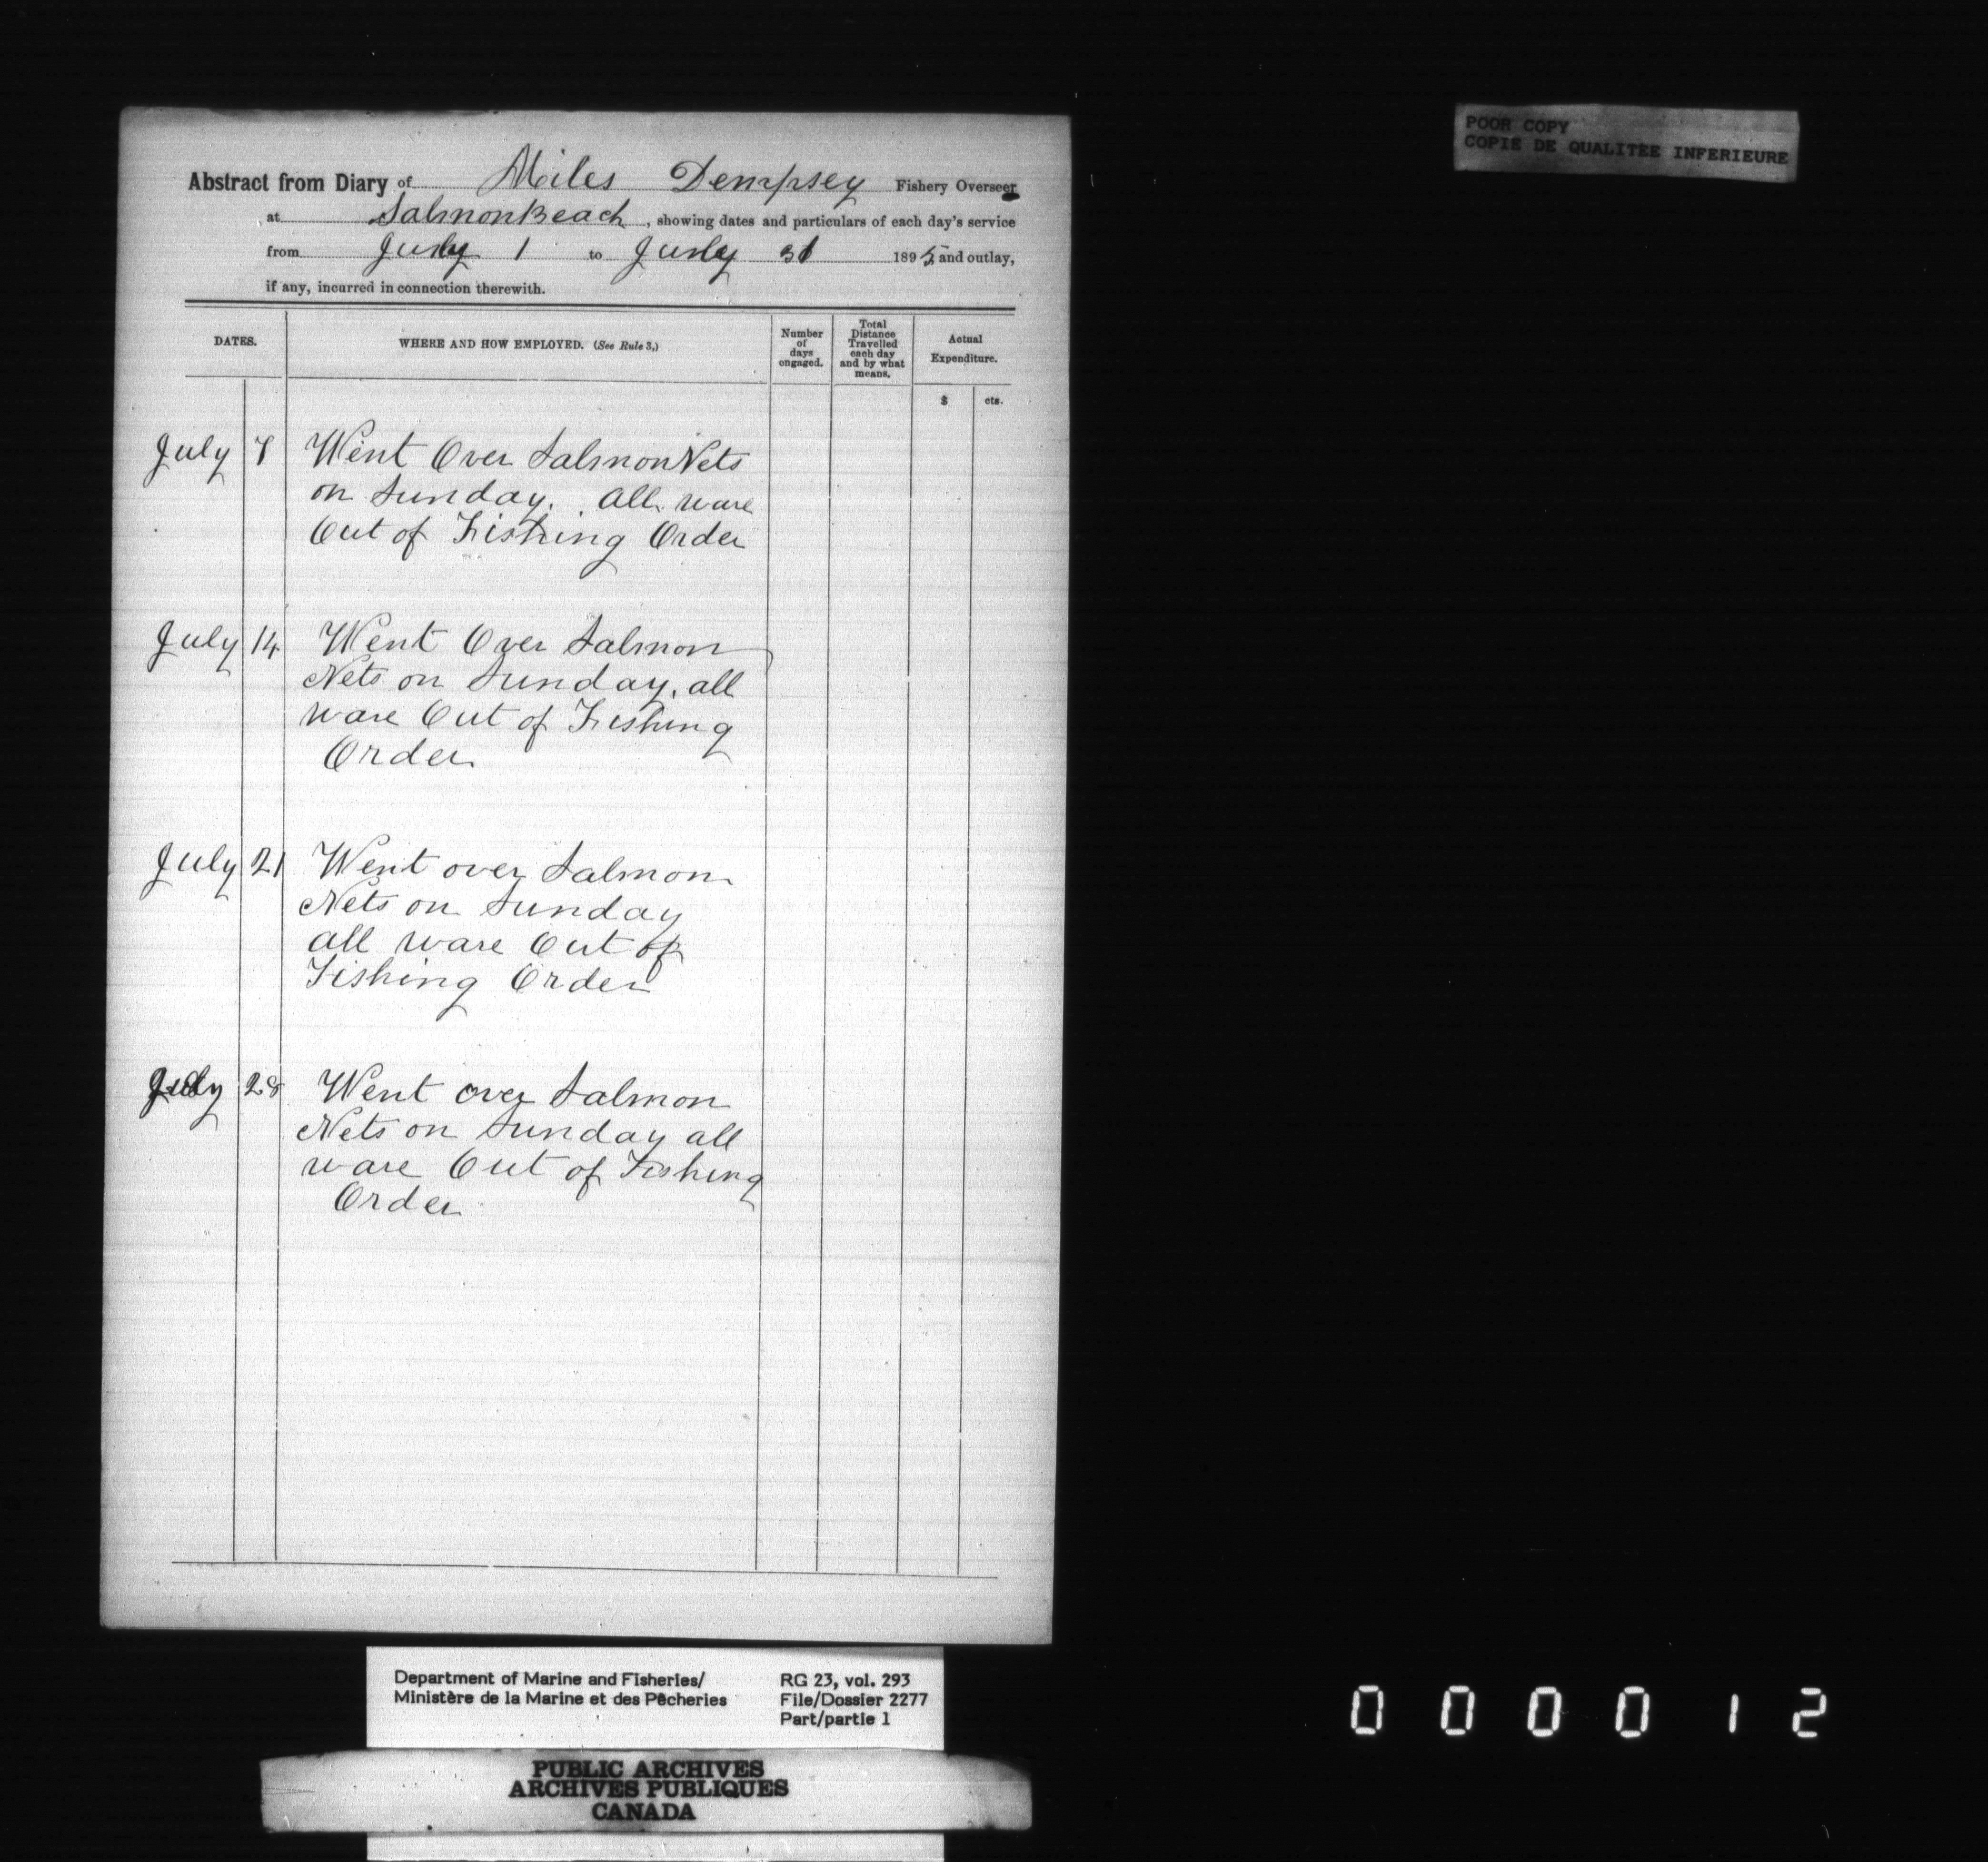 POOR COPY
COPIE DE QUALITEE INFERIEURE
Abstract from Diary of Miles Dempsey Fishery Overseer
at Salmon Beach, showing dates and particulars of each day's service
from July 1 to July 31 1895 and outlay,
if any, incurred in connection therewith.
DATES.
WHERE AND HOW EMPLOYED. (See Rule 3,)
Number
of
days
engaged.
Total
Distance
Travelled
each day
and by what
means.
Actual
Expenditure.
$ cts.
July 7 Went Over Salmon Nets
on Sunday. All ware
Out of Fishing Order
July 14 Went Over Salmon
Nets on Sunday, all
ware Out of Fishing
Order
July 21 Went over Salmon
Nets on Sunday
all ware Out of
Fishing Order
July 28 Went over Salmon
Nets on Sunday all
ware Out of Fishing
Order
Department of Marine and Fisheries/
Ministère de la Marine et des Pêcheries
RG 23, vol. 293
File/Dossier 2277
Part/partie 1
PUBLIC ARCHIVES
ARCHIVES PUBLIQUES
CANADA
000012